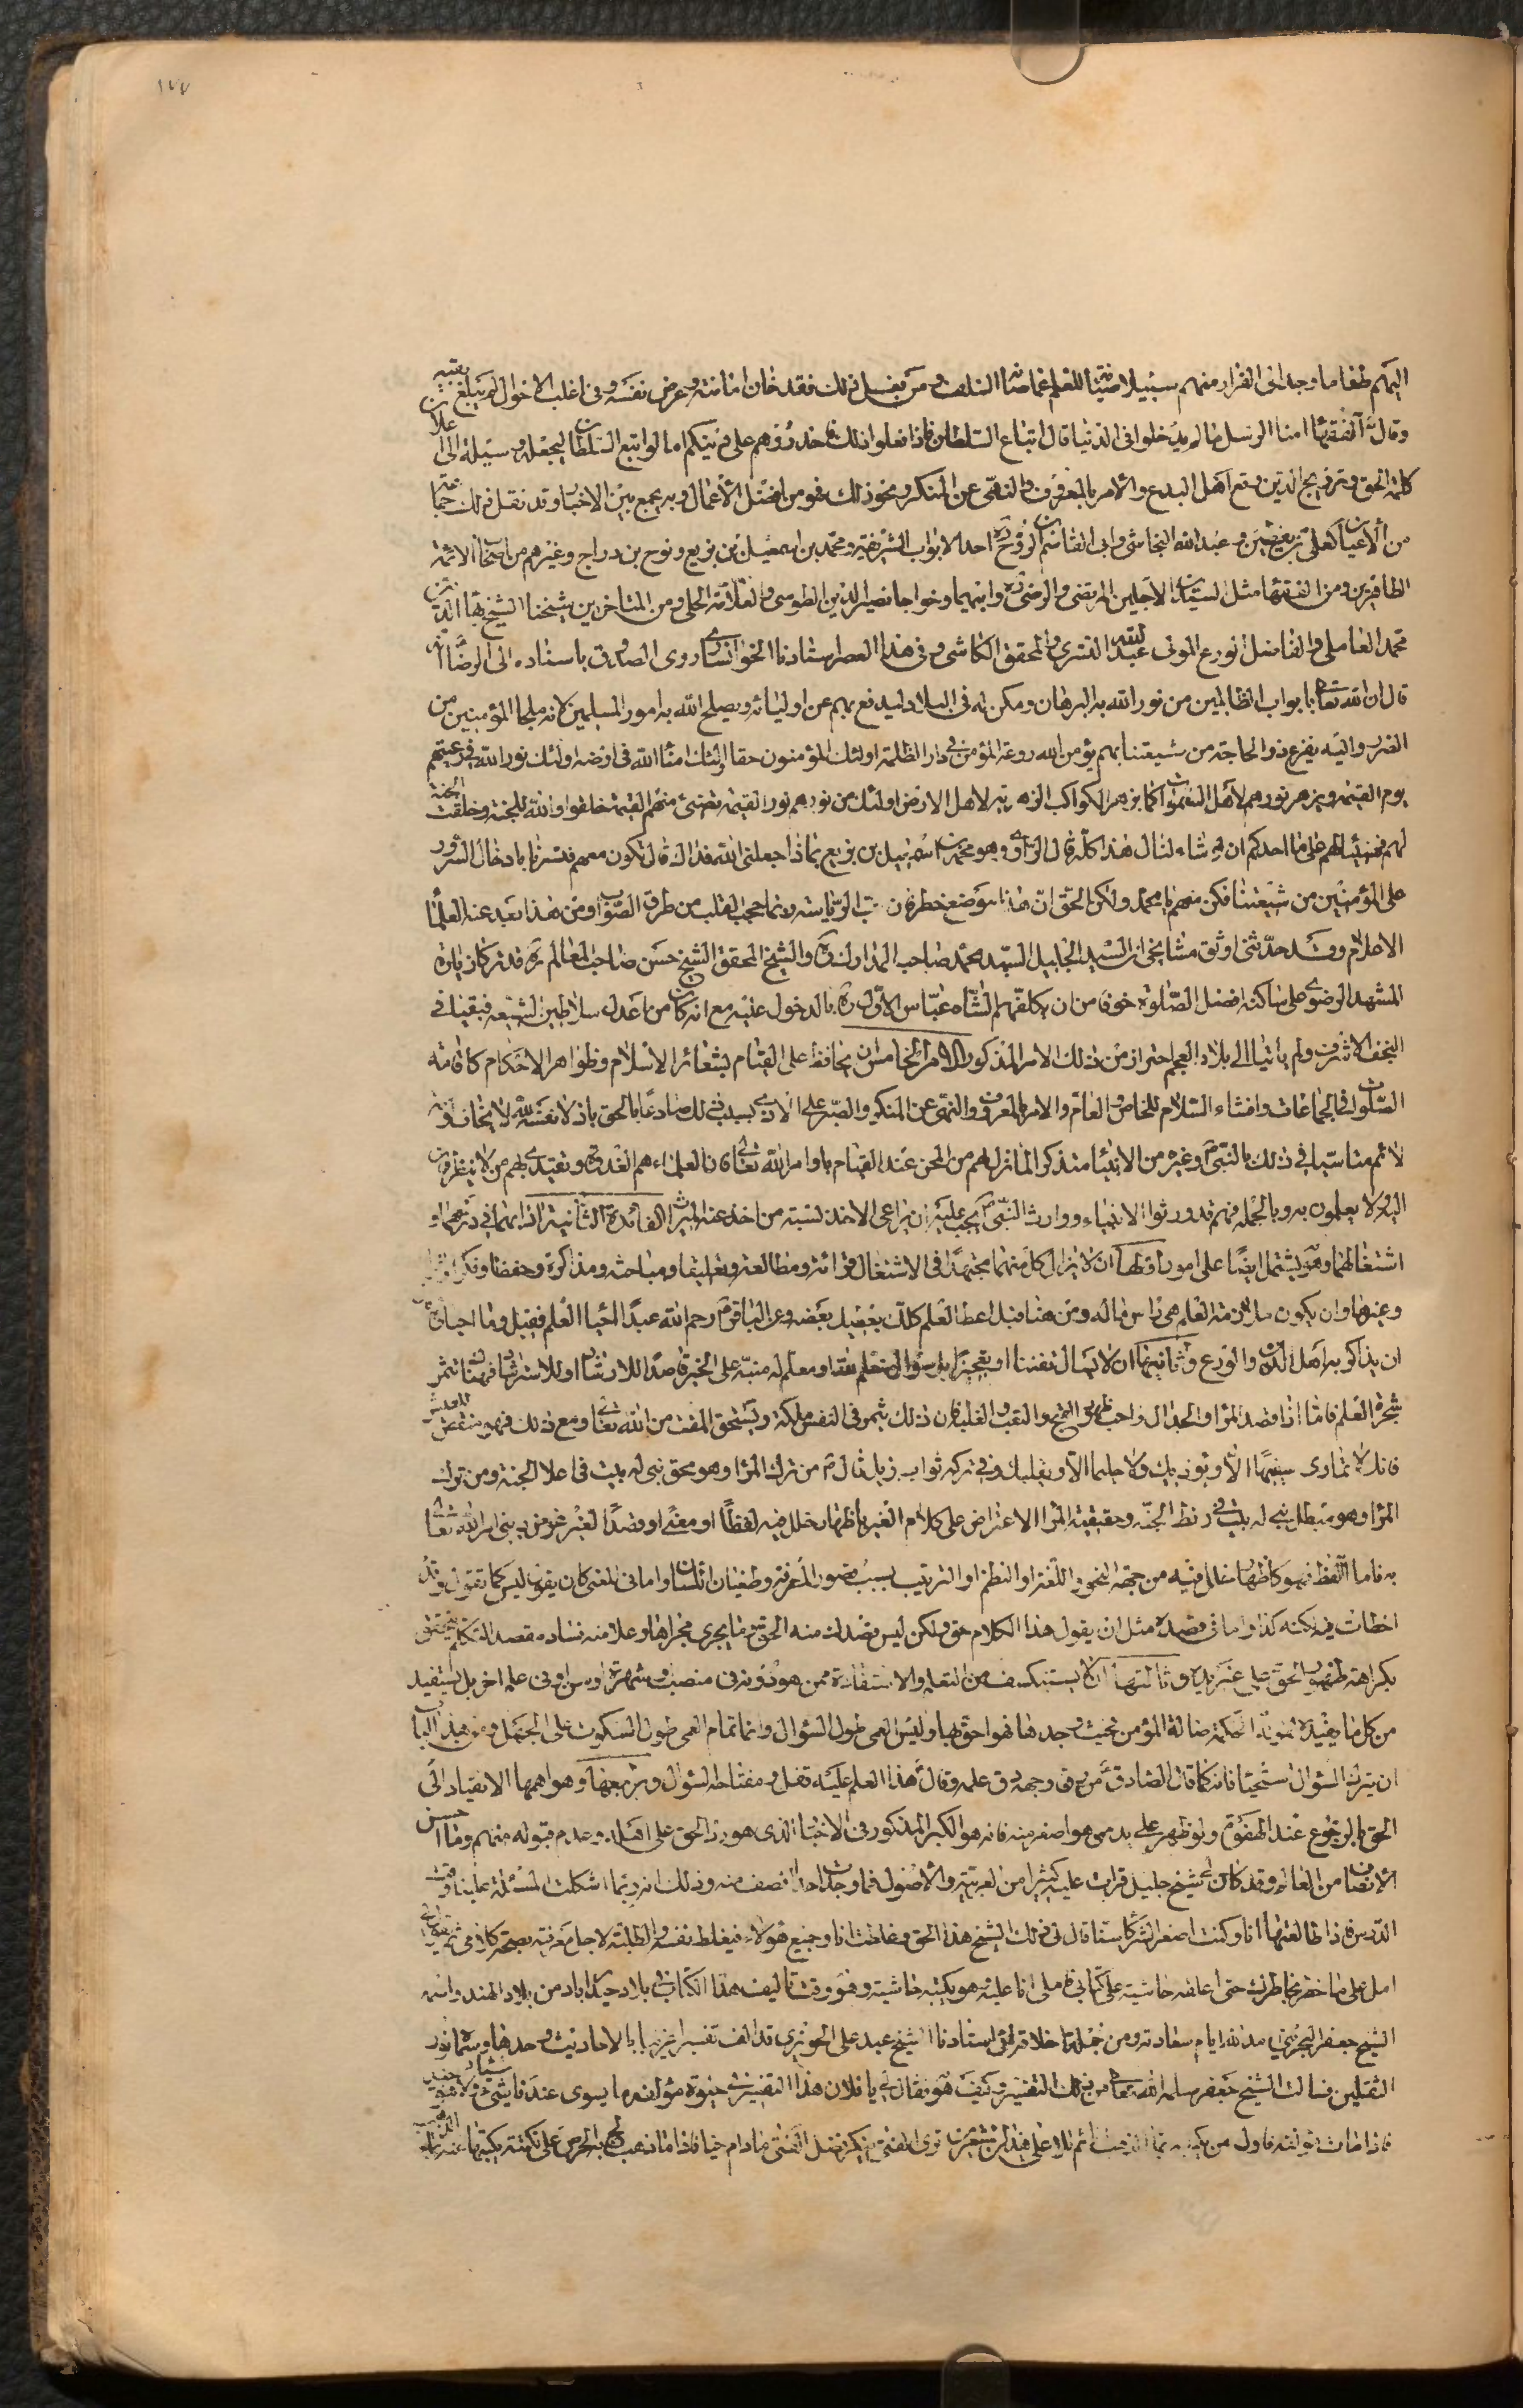 ١٧٧
اليهم طغاما وجد الى الفرار منهم سبيلا صيانة للعلم عما صانه السلف ومن يفعل ذلك فقد خان امانته وعرض نفسه وفى اغلب الاحوال لم يبلغ بغيته
وقال الفقهاء امناء الرسل ما لم يدخلوا فى الدنيا قال اتباع السلطان فاذا فعلوا ذلك فاحذروهم على دينكم اما لو اتبع السلطان ليجعله وسيلة الى اعلاء
كلمة الحق وترويج الدين وقمع اهل البدع والامر بالمعروف والنهى عن المنكر ونحو ذلك فهو من افضل الاعمال وبه يجمع بين الاخبار وقد نقل ذلك جماعة
من الاعيان كعلى بن يقطين وعبد الله النجاشى وابى القاسم بن روح احد الابواب الشريفة ومحمد بن اسمعيل بن بزيع ونوح بن دراج وغيرهم من اصحاب الائمة
الطاهرين ومن الفقهاء مثل السيدين الاجلين المرتضى والرضى وابيهما وخواجا نصير الدين الطوسى والعلامة الحلى ومن المتاخرين شيخنا الشيخ بهاء الدين
محمد العاملى والفاضل الورع المولى عبد الله التسترى والمحقق الكاشى وفى هذا العصر استادنا الخوانسارى روى الصدوق باسناده الى الرضا انه
قال ان لله تعالى بابواب الظالمين من نور الله به البرهان ومكن له فى البلاد ليدفع بهم عن اوليائه ويصلح الله به امور المسلمين لانه ملجأ المؤمنين من
الضرر واليه يفزع ذو الحاجة من شيعتنا بهم يؤمن الله روعة المؤمن فى دار الظلمة اولئك المؤمنون حقا اولئك امناء الله فى ارضه اولئك نور الله فى رعيتهم
يوم القيمة ويزهر نورهم لاهل السموات كما يزهر الكواكب الزهرية لاهل الارض اولئك من نورهم نور القيمة تضئ منهم القيمة خلقوا والله للجنة وخلقت الجنة
لهم فهنيئا لهم على ما احدكم ان لو شاء لنال هذا كله قال الراوى وهو محمد بن اسمعيل بن بزيع بماذا جعلنى الله فداك قال تكون معهم فتسرنا بادخال السرور
على المؤمنين من شيعتنا فكن منهم يا محمد ولكن الحق ان هذا موضع خطر فان حب الرياسة ربما حجب القلب من طرق الصواب ومن هذا بعد عنه العلماء
الاعلام وقد حدثنى اوثق مشايخى ان السيد الجليل السيد محمد صاحب المدارك ره والشيخ المحقق الشيخ حسن صاحب المعالم ره قد تركا زيارة
المشهد الرضوى على ساكنه افضل الصلوة خوفا من ان يكلفهم الشاه عباس الاول ره بالدخول عليه مع انه كان من اعدل سلاطين الشيعة فبقيا فى
النجف الاشرف ولم ياتيا الى بلاد العجم احترازا من ذلك الامر المذكور الامر الخامس ان يحافظ على القيام بشعائر الاسلام وظواهر الاحكام كاقامة
الصلوات فى الجماعات وافشاء السلام للخاص والعام والامر بالمعروف والنهى عن المنكر والصبر على الاذى بسبب ذلك صادعا بالحق باذلا نفسه لله لا يخاف لومة
لائم متاسيا فى ذلك بالنبى وغيره من الانبيا متذكرا لما نزل بهم من المحن عند القيام باوامر الله تعالى فان العلماء هم القدوة ويقتدى بهم من لا ينظرون
اليه ولا يعلمون به وبالجملة فهم قد ورثوا الانبياء ووارث النبى يجب عليه ان يراعى الاخذ لنسبة من اخذ عنه الميراث الفائدة الثانية ادابهما فى درسهما و
اشتغالهما وهو يشتمل ايضا على امور اولها ان لا يزال كل منهما مجتهدا فى الاشتغال قرائة ومطالعة وتعليقا ومباحثة ومذاكرة وحفظا وفكرا
وغيرها وان يكون ملازمة العلم هى راس ماله ومن هنا قيل اعط العلم كلك يعطيك بعضه وعن الباقر رحم الله عبدا احيا العلم فقيل وما احياؤه
ان يذاكر به اهل الدين والورع وثانيها ان لا يسال تعنتا او تعجيزا بل سؤال متعلم لله او معلم له منبه على الخير قاصدا للارشاد او للاسترشاد فهناك تثمر
شجرة العلم فاما اذا قصد المراء والجدال واحب ظهور الفلج والغلبة فان ذلك يثمر فى النفس ملكة ويستحق المقت من الله تعالى ومع ذلك فهو منغص للعيش
فانك لا تمارى سفيها الا ويؤذيك ولا حليما الا ويقليك وفى تركه ثواب جزيل قال من ترك المراء وهو محق بنى له بيت فى اعلا الجنة ومن ترك
المراء وهو مبطل بنى له بيت فى ربض الجنة وحقيقة المراء الاعتراض على كلام الغير باظهار خلل فيه لفظا او معنى او قصدا لغير غرض دينى امر الله تعالى
به فاما اللفظ فهو كاظهار خلل فيه من جهة النحو او اللغة او النظم او الترتيب بسبب قصور المعرفة وطغيان اللسان واما فى المعنى كان يقول ليس كما تقول وقد
اخطات فيه لكنه كذا واما فى قصده مثل ان يقول هذا الكلام حق ولكن ليس قصدك منه الحق وما يجرى مجراها وعلامة فساد مقصد المتكلم تتحقق
بكراهة ظهور الحق على غير يديه وثالثها ان لا يستنكف من التعلم والاستفادة ممن هو دونه فى منصب وشهرة او سن او فى علم اخر بل يستفيد
من كل ما يفيده لقوله الحكمة ضالة المؤمن فحيث وجدها فهو احق بها وليس العمى طول السؤال وانما تمام العمى طول السكوت على الجهل ومن هذا الباب
ان يترك السؤال استحياء فانه كما قال الصادق من رق وجهه رق علمه وقال هذا العلم عليه قفل ومفتاحه السؤال ورابعها وهو اهمها الانقياد الى
الحق بالرجوع عند الهفوة ولو ظهر على يد من هو اصغر منه فانه هو الكبر المذكور فى الاخبار الذى هو رد الحق على اهله وعدم قبوله منهم وما احسن
الانصاف من العالم وقد كان لى شيخ جليل قرات عليه كثيرا من العربية والاصول فما وجدت احدا انصف منه وذلك انه ربما اشكلت المسئلة علينا وقت
الدرس فاذا طالعتها انا وكنت اصغر الشركاء سنا قال لى ذلك الشيخ هذا الحق وغلطت انا وجميع هؤلاء فيغلط نفسه والطلبة لاجل معرفته بصحة كلامى ثم يقول لى
امل على ما خطر بخاطرك حتى اعلقه حاشية على كتابى فاملى انا عليه وهو يكتبه حاشية وهو وقت تاليف هذا الكتاب فى بلاد حيدراباد من بلاد الهند واسمه
الشيخ جعفر البحرينى مد الله ايام سعادته ومن جملة اخلاقه لى استادنا الشيخ عبد على الحويزى قد الف تفسيرا غريبا بالاحاديث وحدها وسماه نور
الثقلين فسالت الشيخ جعفر سلمه الله تعالى من ذلك التفسير كيف هو فقال لى يا فلان هذا التفسير فى حيوة مؤلفه ما يسوى عندنا شيئا
فاذا مات مؤلفه فاول من يكتبه بماء الذهب انا ثم تلا على هذا الشعر ترى الفتى ينكر فضل الفتى ما دام حيا فاذا ما ذهب لج به الحرص على نكتة يكتبها عنه بماء الذهب